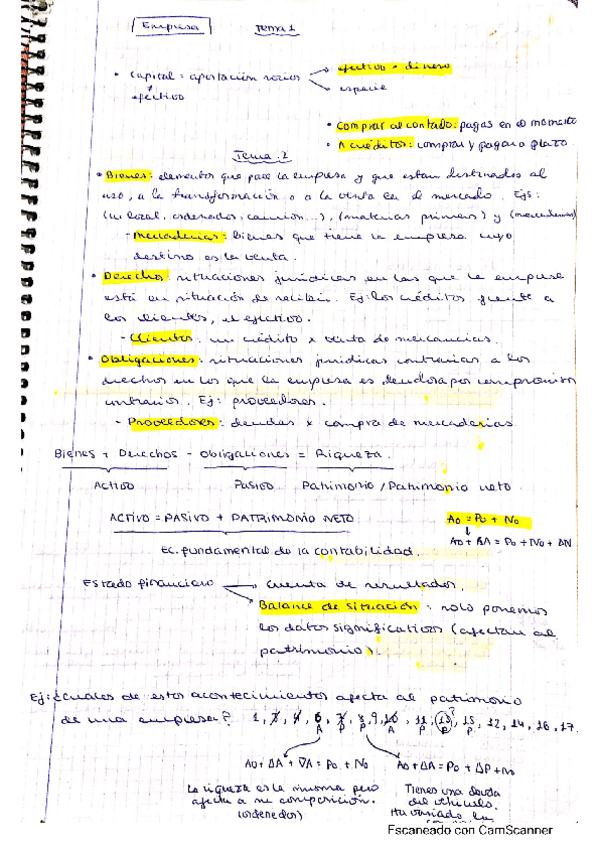 Empresa Tema 1
• Capital: aportación socios → efectivo = dinero
efectivo → especie
• Comprar al contado: pagas en el momento
• A créditos: comprar y pagar a plazo.
Tema. 2
• Bienes: elementos que pose la empresa y que estan destinados al
uso, a la transformación o a la venta en el mercado. Ejs:
(un local, ordenador, camión...), (materias primas) y (mercaderias)
- Mercaderias: bienes que tiene la empresa cuyo
destino es la venta.
• Derecho: situaciones jurídicas en las que la empresa
está en situación de recibir. Ej: los créditos frente a
los clientes, el efectivo.
- Clientes: un crédito x venta de mercancias.
• Obligaciones: situaciones jurídicas contrarias a los
derechos en los que la empresa es deudora por compromisos
contrarios. Ej: proveedores.
- Proveedores: deudas x compra de mercaderias
Bienes + Derechos - Obligaciones = Riqueza.
ACTIVO PASIVO Patrimonio / Patrimonio neto.
ACTIVO = PASIVO + PATRIMONIO NETO A₀ = P₀ + N₀
↓
A₀ + ΔA = P₀ + N₀ + ΔN
Ec. fundamental de la contabilidad.
Estado financiero → cuenta de resultados.
→ Balance de situación: solo ponemos
los datos significativos (afectan al
patrimonio).
Ej: ¿cuales de estos acontecimientos afecta al patrimonio
de una empresa? 1, 3, 4, 6, 7, 8, 9, 10, 11, 13, 15, 12, 14, 16, 17.
A P P A P P P
A₀ + ΔA + ∇A = P₀ + N₀ A₀ + ΔA = P₀ + ΔP + N₀
La riqueza es la misma pero Tienes una deuda
afecta a su composición. del vehículo.
(ordenador) Ha variado la
Escaneado con CamScanner